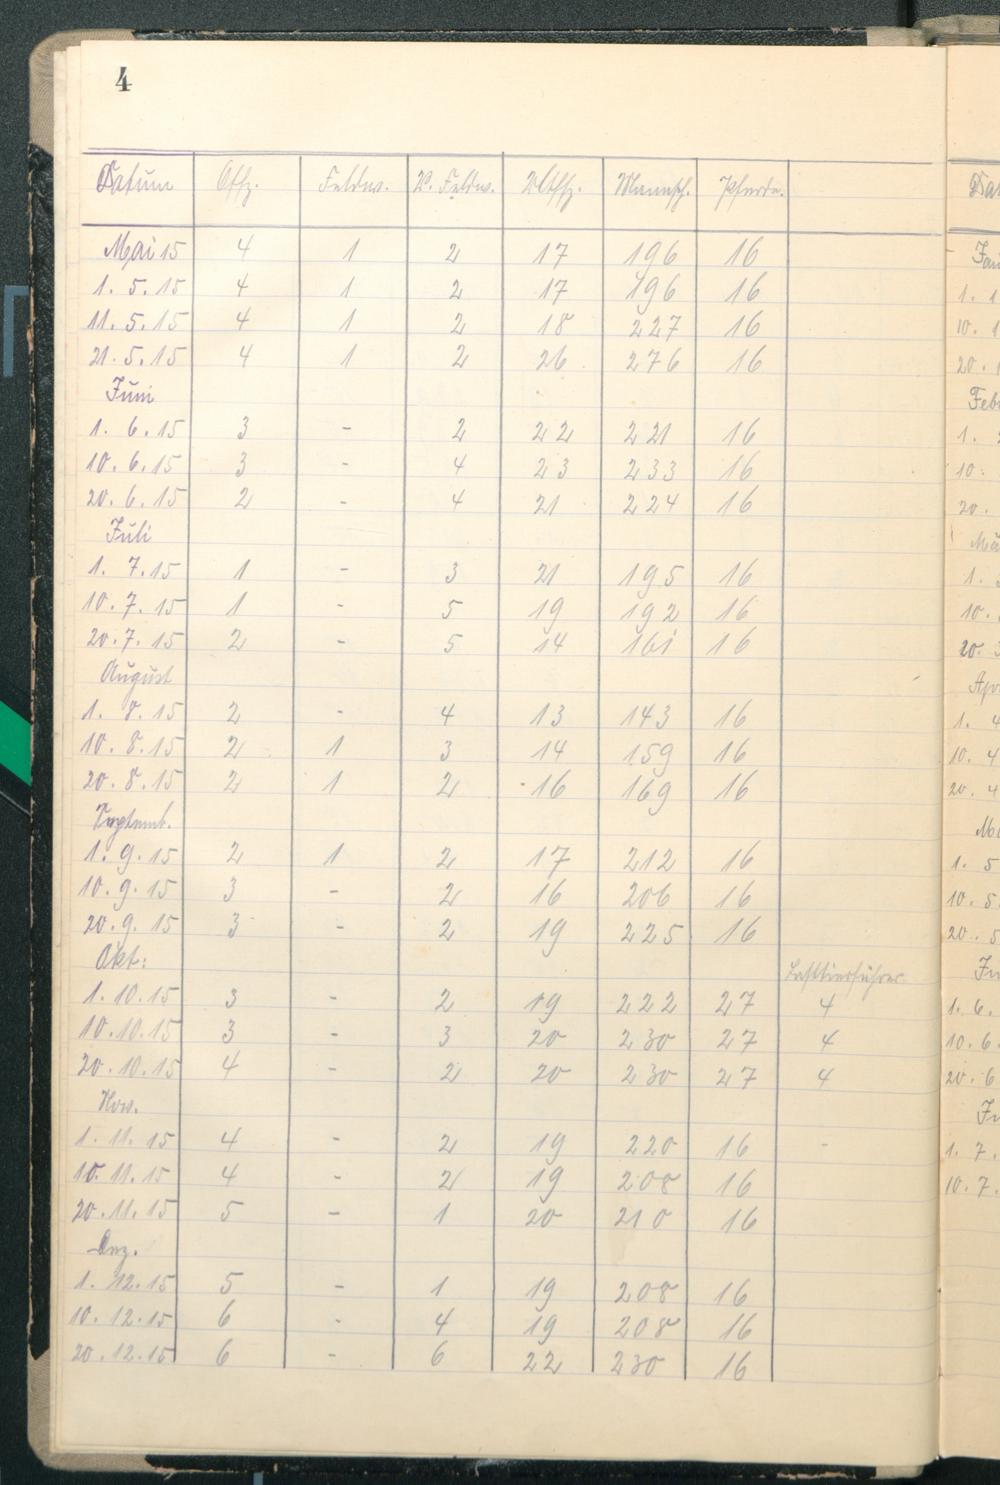 4
Datum Offz. Feldw. V. Feldw. Utffz. Mannsch. Pferde.
Mai 15 4 1 2 17 196 16
1. 5. 15 4 1 2 17 196 16
11. 5. 15 4 1 2 18 227 16
21. 5. 15 4 1 2 26 276 16
Juni
1. 6. 15 3 - 2 22 221 16
10. 6. 15 3 - 4 23 233 16
20. 6. 15 2 - 4 21 224 16
Juli
1. 7. 15 1 - 3 21 195 16
10. 7. 15 1 - 5 19 192 16
20. 7. 15 2 - 5 14 161 16
August
1. 8. 15 2 - 4 13 143 16
10. 8. 15 2 1 3 14 159 16
20. 8. 15 2 1 2 16 169 16
Septemb.
1. 9. 15 2 1 2 17 212 16
10. 9. 15 3 - 2 16 206 16
20. 9. 15 3 - 2 19 225 16
Okt: Lasttierführer
1. 10. 15 3 - 2 19 222 27 4
10. 10. 15 3 - 3 20 230 27 4
20. 10. 15 4 - 2 20 230 27 4
Nov.
1. 11. 15 4 - 2 19 220 16 -
10. 11. 15 4 - 2 19 208 16
20. 11. 15 5 - 1 20 210 16
Dez.
1. 12. 15 5 - 1 19 208 16
10. 12. 15 6 - 4 19 208 16
20. 12. 15 6 - 6 22 230 16